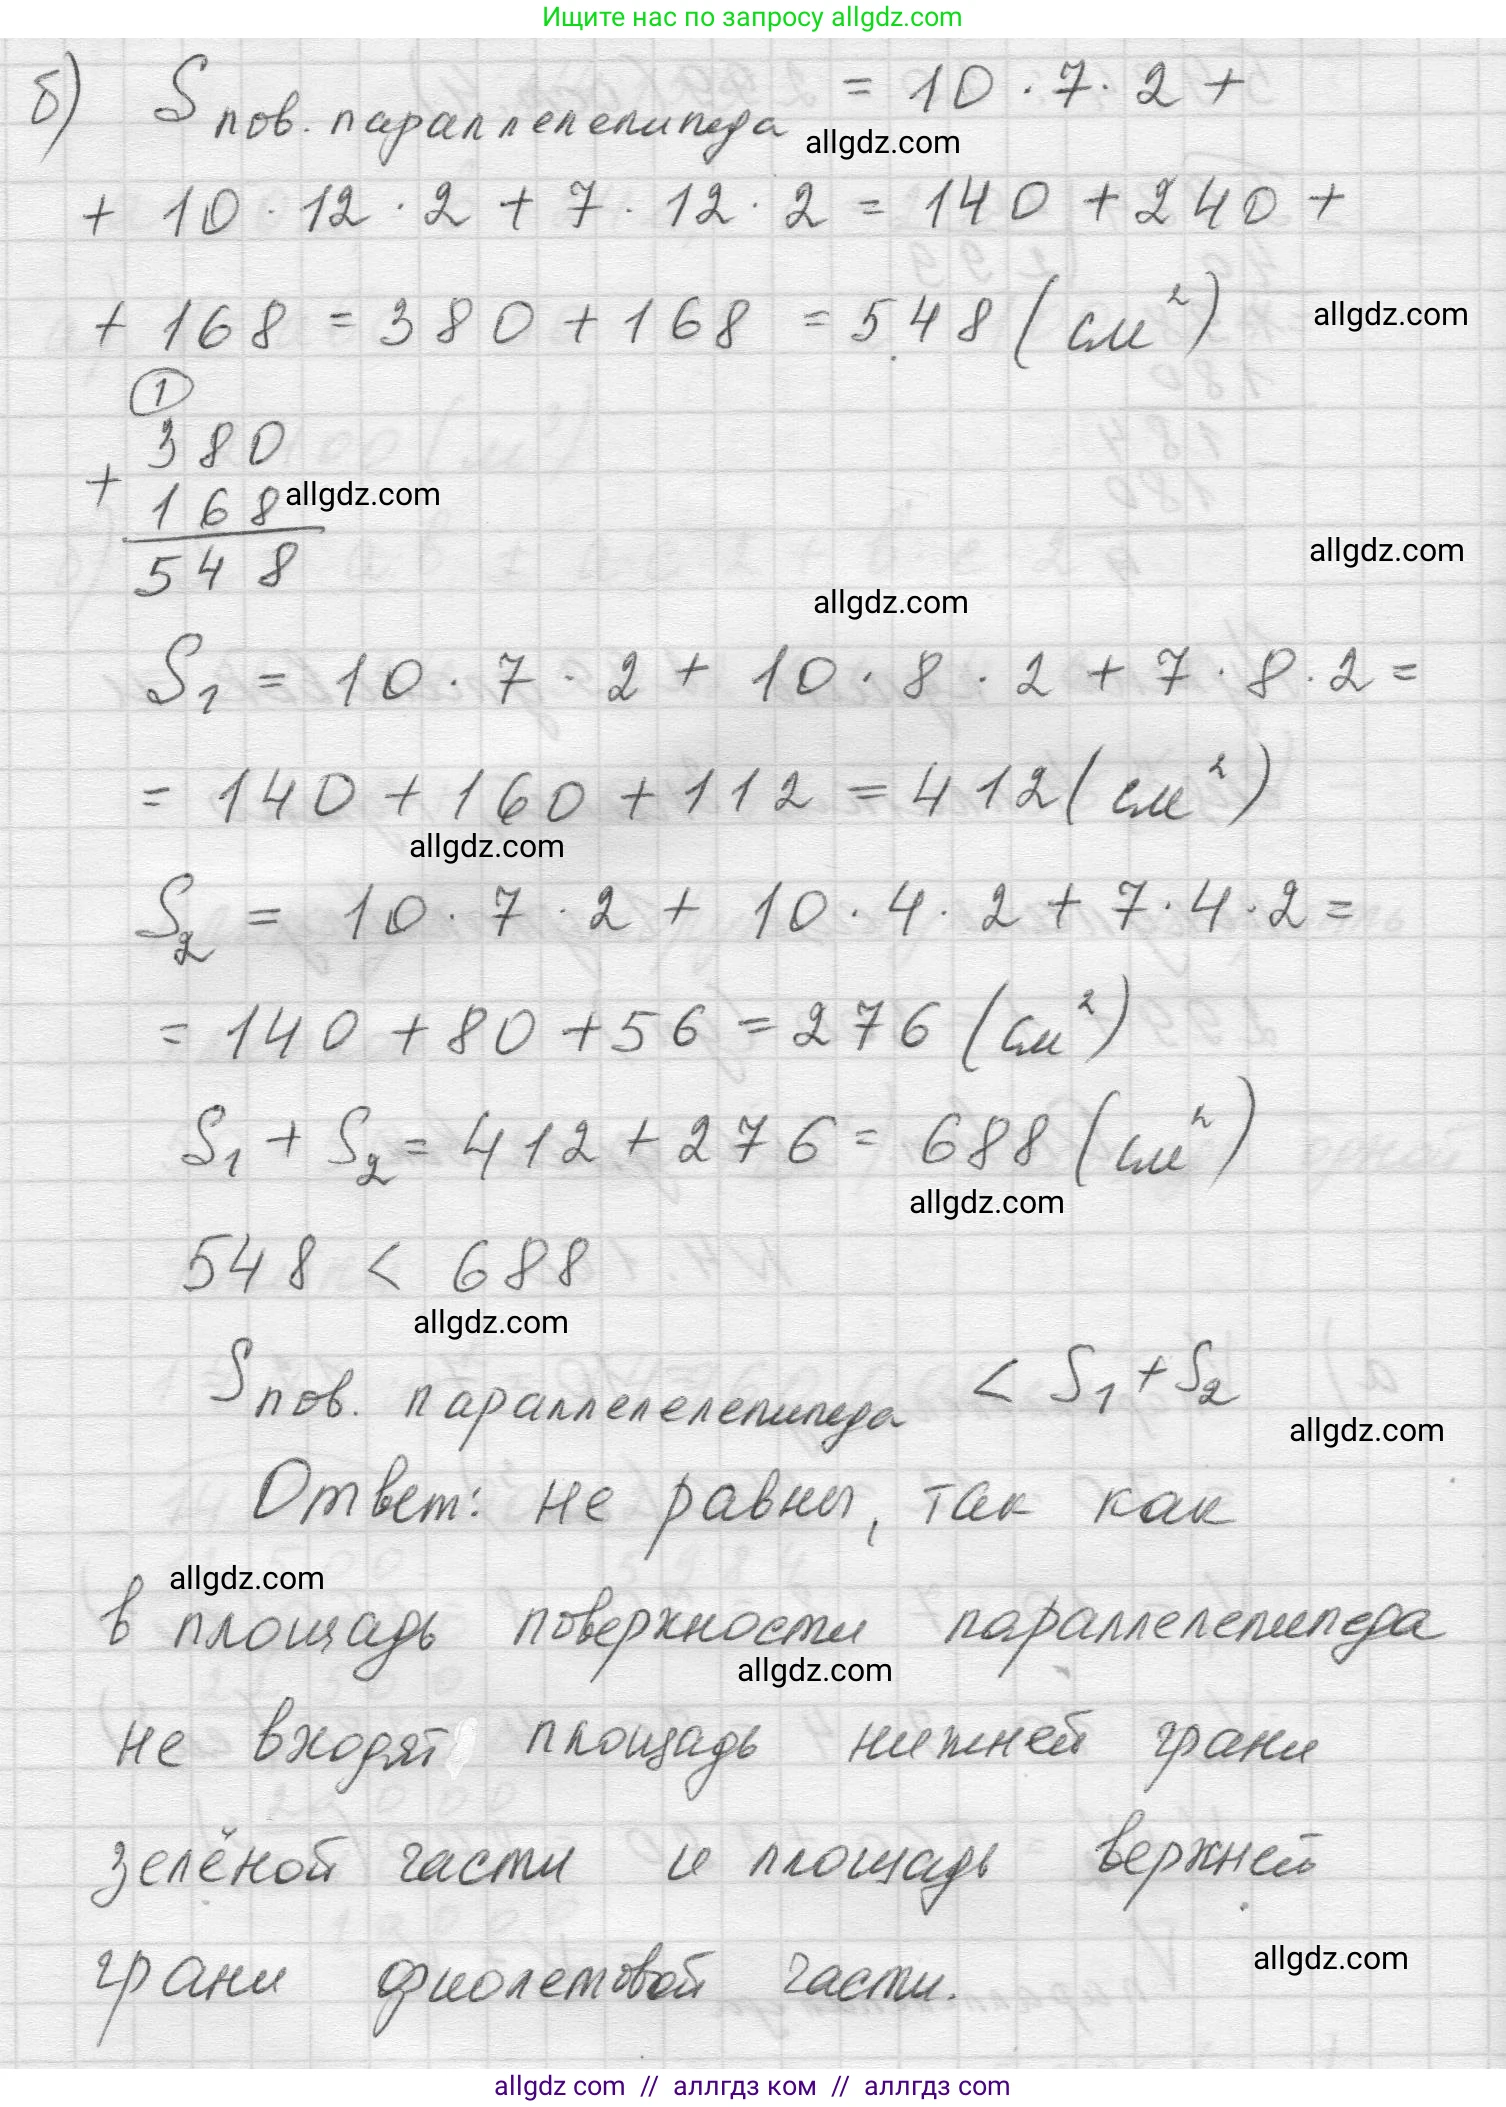 Ищите нас по запросу allgdz.com
б) S пов. параллелепипеда = 10 · 7 · 2 +
allgdz.com
+ 10 · 12 · 2 + 7 · 12 · 2 = 140 + 240 +
+ 168 = 380 + 168 = 548 (см²)
allgdz.com
1
380
+
168
allgdz.com
548
allgdz.com
allgdz.com
S₁ = 10 · 7 · 2 + 10 · 8 · 2 + 7 · 8 · 2 =
= 140 + 160 + 112 = 412 (см²)
allgdz.com
S₂ = 10 · 7 · 2 + 10 · 4 · 2 + 7 · 4 · 2 =
= 140 + 80 + 56 = 276 (см²)
S₁ + S₂ = 412 + 276 = 688 (см²)
allgdz.com
548 < 688
allgdz.com
S пов. параллелелепипеда < S₁ + S₂
allgdz.com
Ответ: не равны, так как
allgdz.com
в площадь поверхности параллелепипеда
allgdz.com
не входят площадь нижней грани
зелёной части и площадь верхней
грани фиолетовой части.
allgdz.com
allgdz com // аллгдз ком // аллгдз com